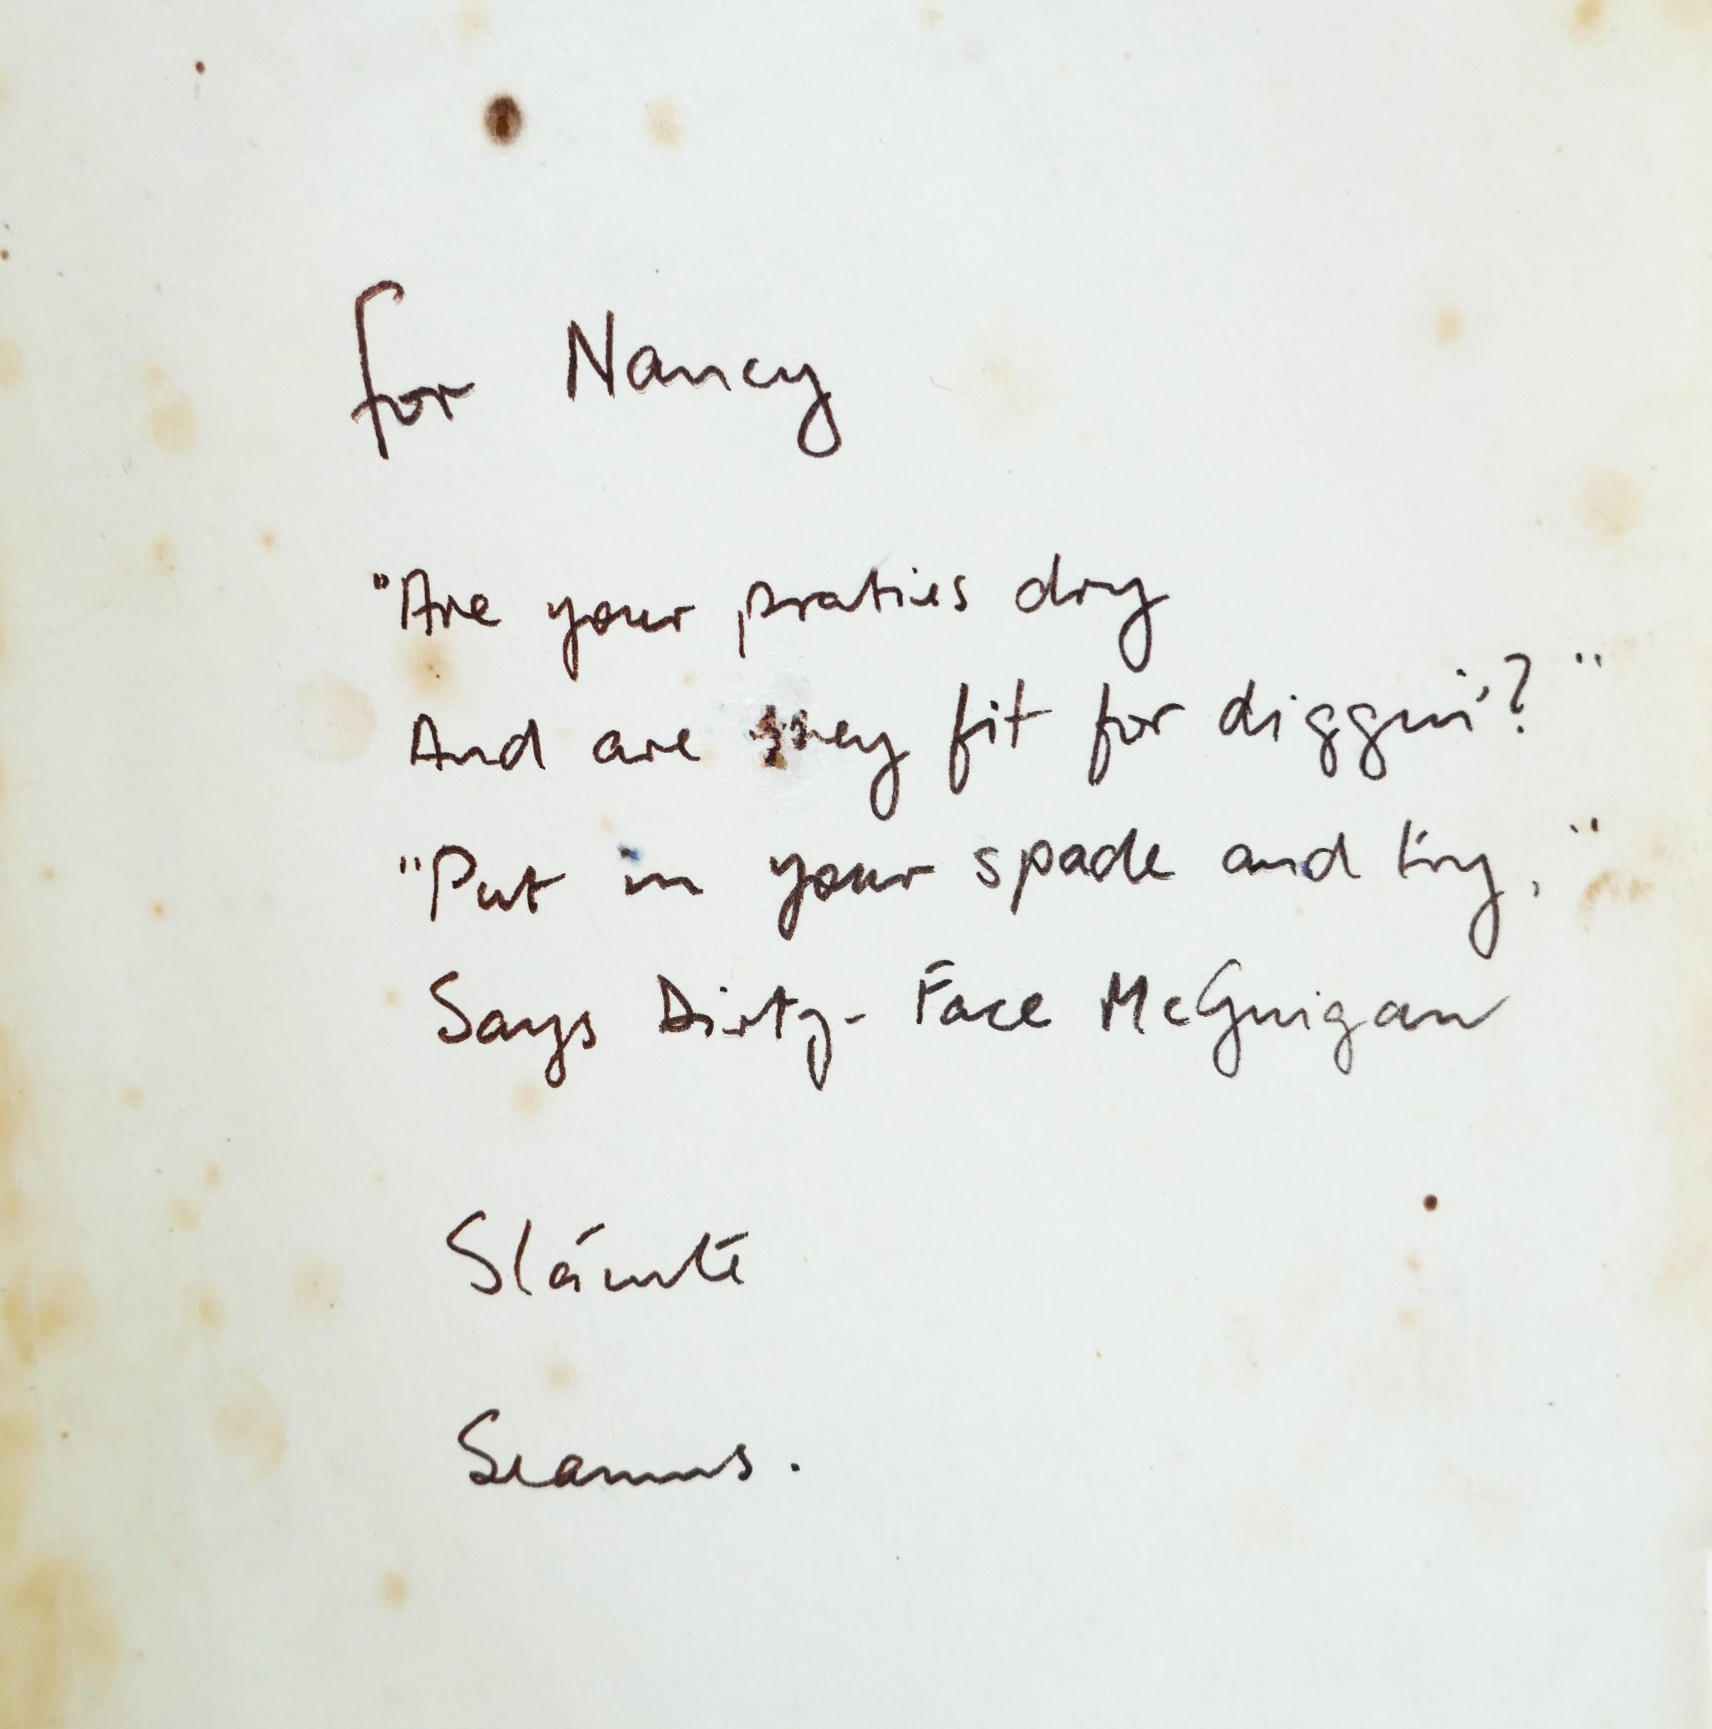 for Nancy
"Are your praties dry
And are they fit for diggin'?"
"Put in your spade and try,"
Says Dirty-Face McGuigan
Sláinte
Seamus.